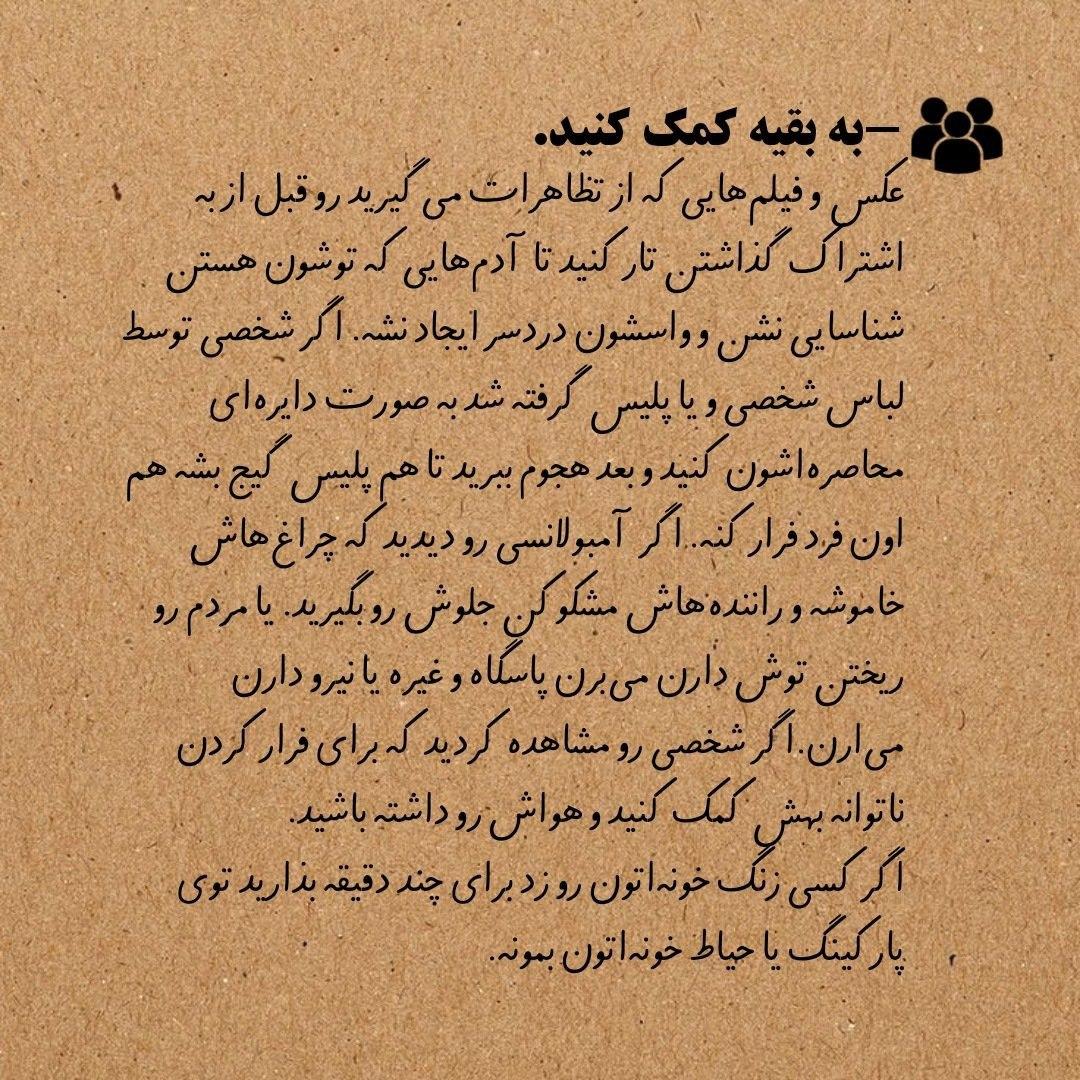 -به بقیه کمک کنید.
عکس و فیلم‌هایی که از تظاهرات می گیرید رو قبل از به
اشتراک گذاشتن تار کنید تا آدم‌هایی که توشون هستن
شناسایی نشن و واسشون دردسر ایجاد نشه. اگر شخصی توسط
لباس شخصی و یا پلیس گرفته شد به صورت دایره‌ای
محاصره‌اشون کنید و بعد هجوم ببرید تا هم پلیس گیج بشه هم
اون فرد فرار کنه.. اگر آمبولانسی رو دیدید که چراغ‌هاش
خاموشه و راننده‌هاش مشکوکن جلوش رو بگیرید. یا مردم رو
ریختن توش دارن می‌برن پاسگاه و غیره یا نیرو دارن
می‌ارن.اگر شخصی رو مشاهده کردید که برای فرار کردن
ناتوانه بهش کمک کنید و هواش رو داشته باشید.
اگر کسی زنگ خونه‌اتون رو زد برای چند دقیقه بذارید توی
پارکینگ یا حیاط خونه‌اتون بمونه.